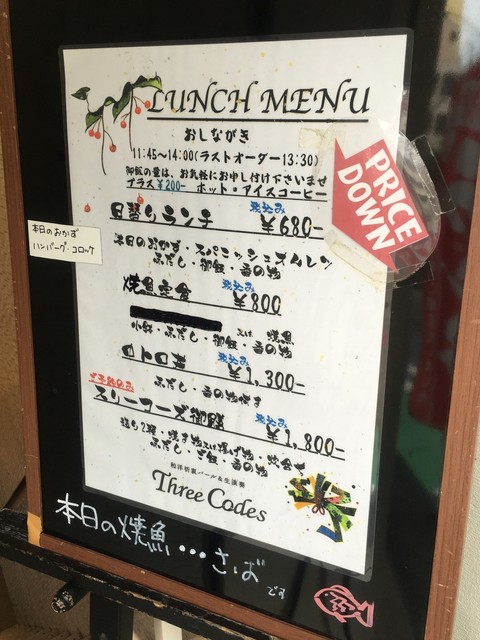 LUNCH MENU
おしながき
11:45〜14:00(ラストオーダー13:30)
御飯の量は、お気軽にお申し付け下さいませ
プラス¥200- ホット・アイスコーヒー
PRICE
DOWN
日替りランチ 税込み ¥680-
本日のおかず
ハンバーグ・コロッケ
本日のおかず・スパニッシュオムレツ
みそだし・御飯・香の物
焼魚定食 税込み ¥800
小鉢・みそだし・御飯・香の物
焼魚
トロ 税込み ¥1,300-
みそだし・香の物付き
ご予約のみ
スリーコーズ御膳 税込み ¥1,800-
焼き物又は揚げ物・炊合せ
ご飯・香の物
和洋折衷バール&生演奏
Three Codes
本日の焼魚…さば
です